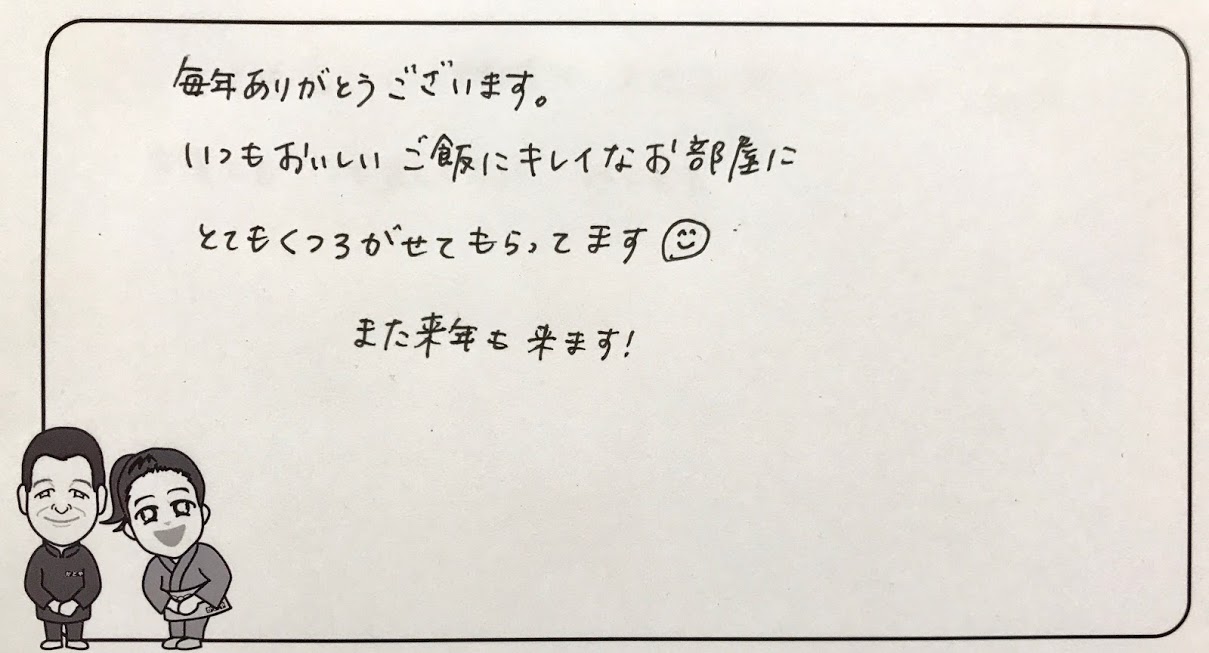 毎年ありがとうございます。
いつもおいしいご飯にキレイなお部屋に
とてもくつろがせてもらってます
また来年も来ます!